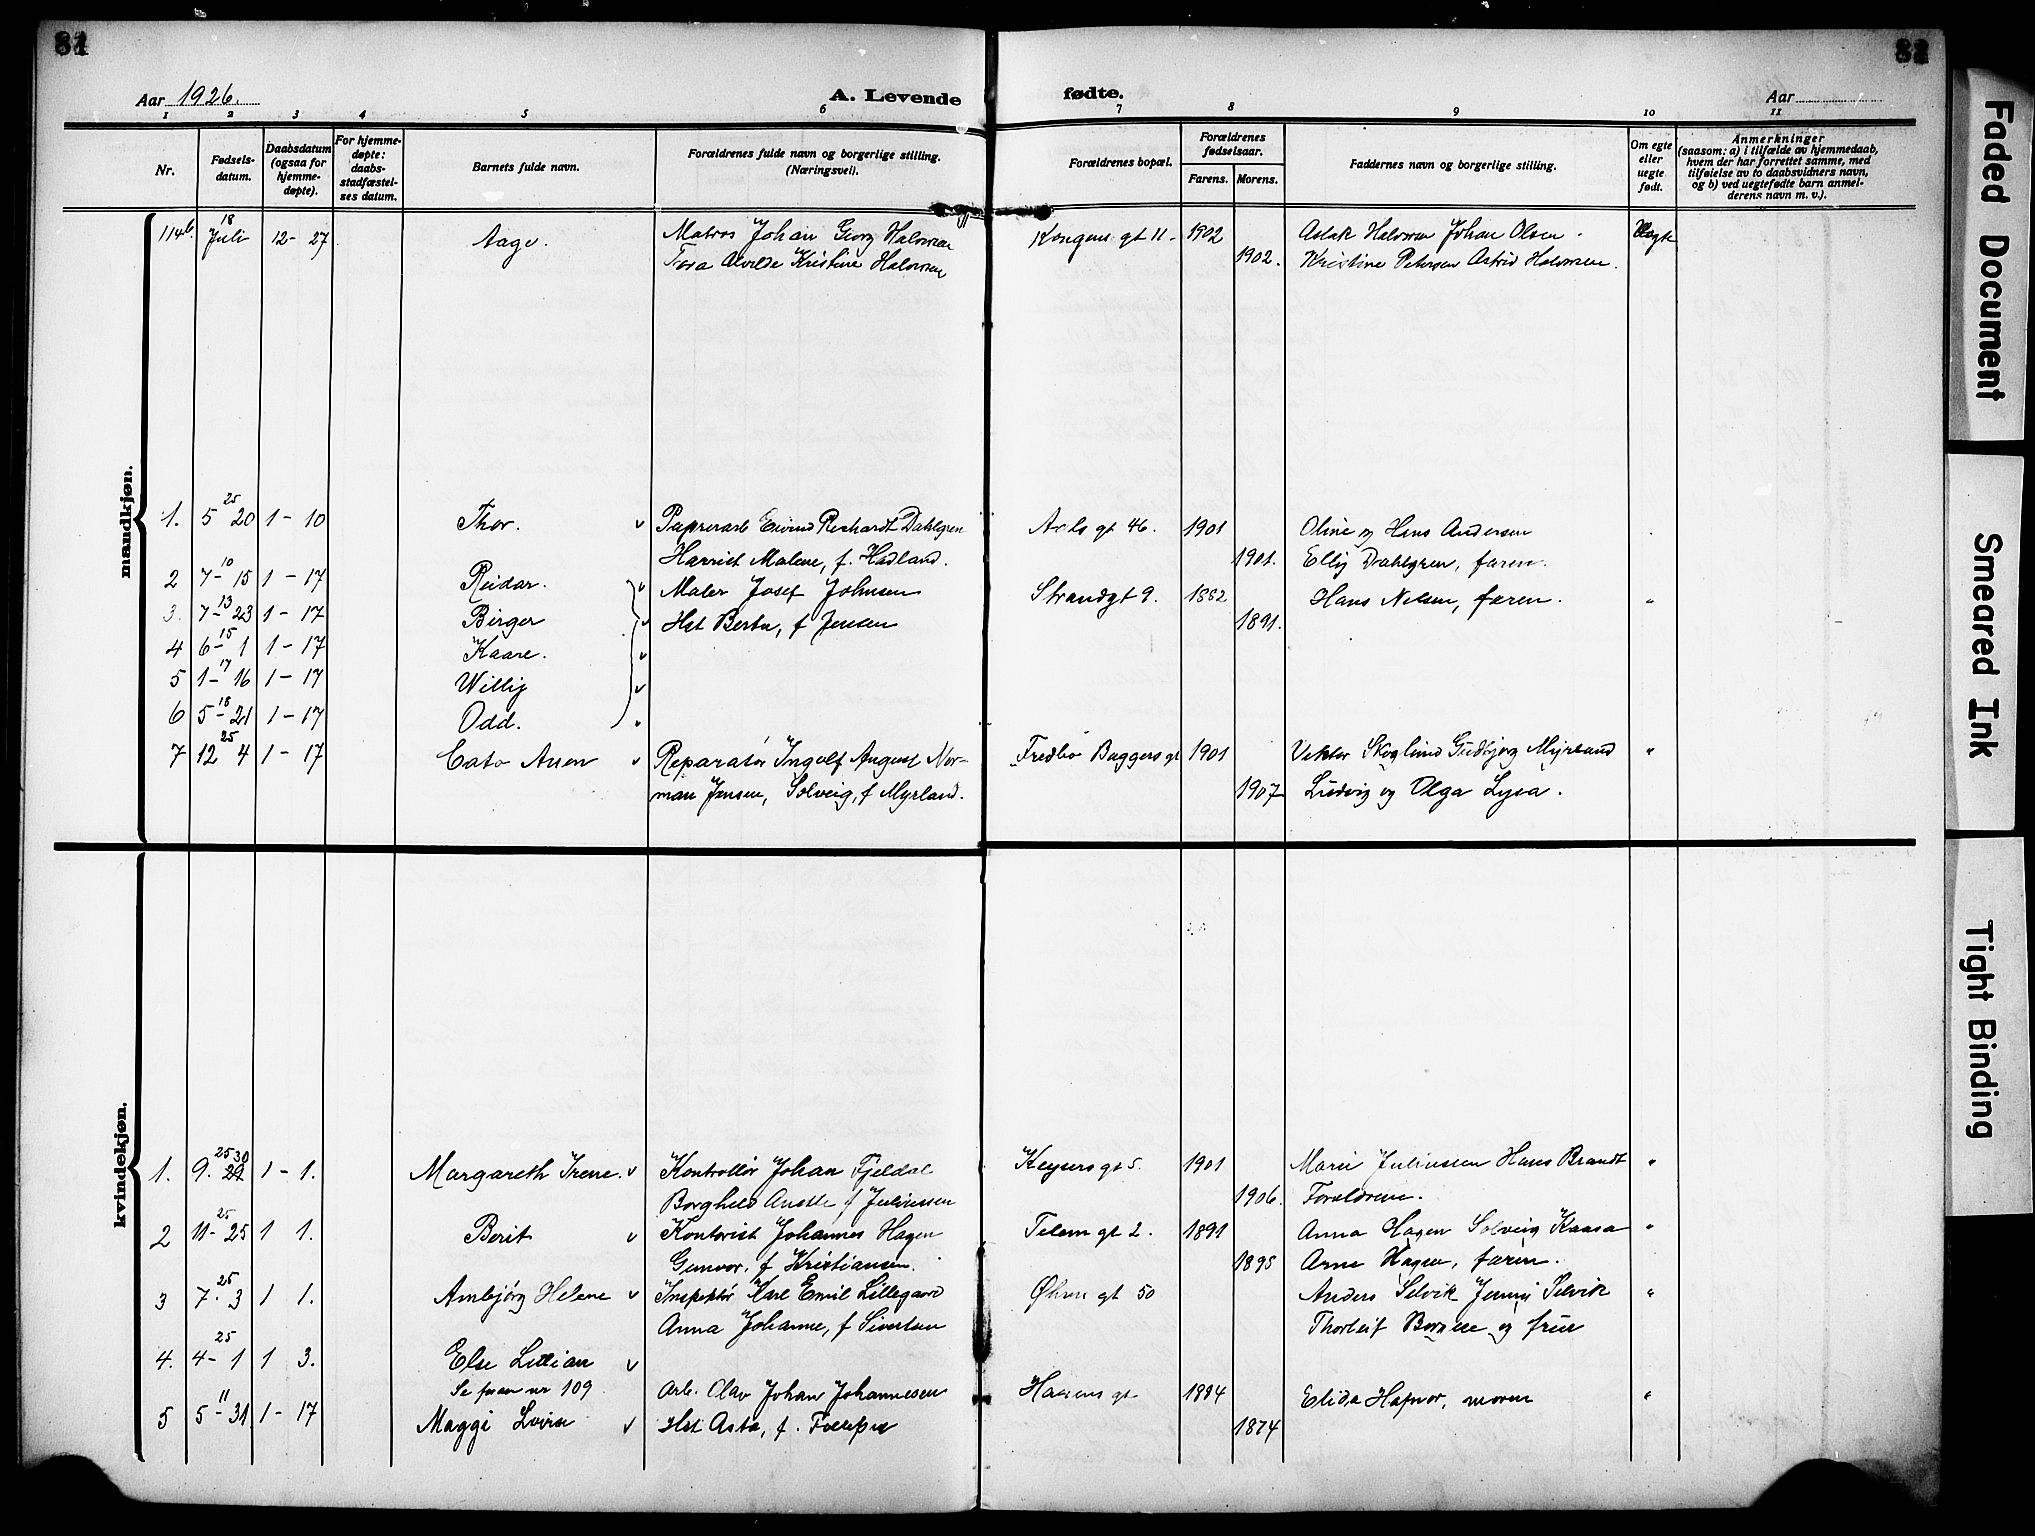 81
Aar 1926.
A. Levende
1 2 3 4 5 6
Nr.
Fødsels-
datum.
Daabsdatum
(ogsaa for
hjemme-
døpte).
For hjemme-
døpte:
daabs-
stadfæstel-
ses datum.
Barnets fulde navn.
Forældrenes fulde navn og borgerlige stilling.
(Næringsvei).
fødte.
Aar
7 8 9 10 11
Forældrenes bopæl.
Forældrenes
fødselsaar.
Farens. Morens.
Faddernes navn og borgerlige stilling.
Om egte
eller
uegte
født.
Anmerkninger
(saasom: a) i tilfælde av hjemmedaab,
hvem der har forrettet samme, med
tilføielse av to daabsvidners navn,
og b) ved uegtefødte barn anmel-
derens navn m. v.).
mandkjøn.
114b 18 Juli 12- 27 Aage. Matros Johan Georg Halvorsen Kongens gt 11- 1902 Aslak Halvorsen Johan Olsen. Uegte
Tora Alvilde Kristine Halvorsen 1902. Kristine Petersen Astrid Halvorsen.
1. 5 25 20 1- 10 Thor. v Papirarb Eivind Richardt Dahlgren Axels gt 46. 1901 Oline og Hans Andersen
Harriet Malene, f. Hadland. 1901. Elly Dahlgren, faren.
2 7- 10 15 1 - 17 Reidar. v Maler Josef Johnsen Strandgt 9. 1882 Hans Nilsen, faren. "
3. 7- 13 23 1- 17 Birger v Hst Berta, f Jensen 1891.
4 6- 15 1 1- 17 Kaare. v
5 1- 17 16 1- 17 Willy v
6 5- 18 21 1- 17 Odd.
7 12 25 4 1- 17 Cato Auen v Reparatør Ingolf August Nor- Fredbo Baggers gt 1901 Viktor Skoglund Gudbjørg Myrland "
man Jensen, Solveig, f Myrland. 1907 Ludvig og Olga Lysa.
kvindekjøn.
1. 9. 25 30 29 1- 1. Margareth Irene. v Kontrollør Johan Fjeldal Keysers gt 5. 1901 Marie Juliussen Hans Brandt "
Borghild Anette f Juliussen 1906. Forældrene.
2 11- 25 25 1 1. Berit v Kontorist Johannes Hagen Telem gt 2. 1891 Anna Hagen Solveig Kaasa "
Gunvor, f Kristiansen. 1895 Arne Hagen, faren.
3 7- 25 3 1 1. Ambjørg Helene v Inspektør Karl Emil Lillegaard Øhren gt 50 Anders Selvik Jenny Selvik "
Anna Johanne, f Sivertsen Thorleif og frue
4. 4- 25 1 1 3. Else Lillian v
Se foran nr 109.
5 5- 11 31 1- 17 Arb. Olav Johan Johannesen Hansens gt 1894 Elida Hafnor, moren "
Maggi Lovise v Hst Asta, f. 1874
Faded Document
Smeared Ink
Tight Binding